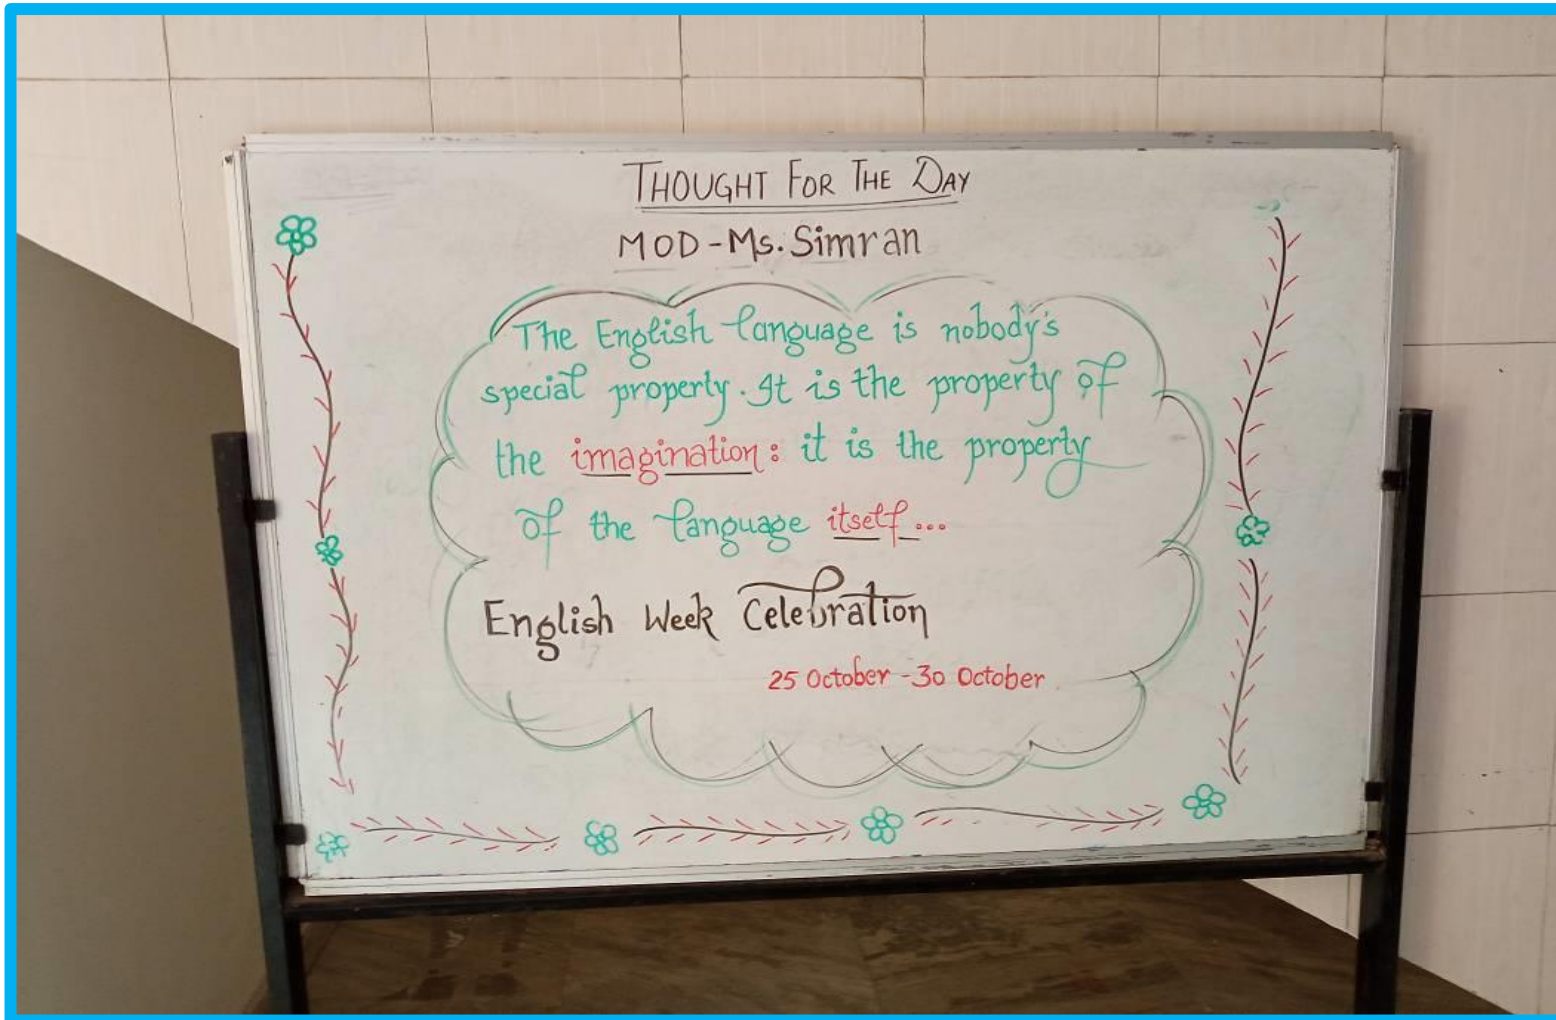 THOUGHT FOR THE DAY
MOD - Ms. Simran
The English language is nobody's
special property. It is the property of
the imagination: it is the property
of the language itself...
English Week Celebration
25 October - 30 October